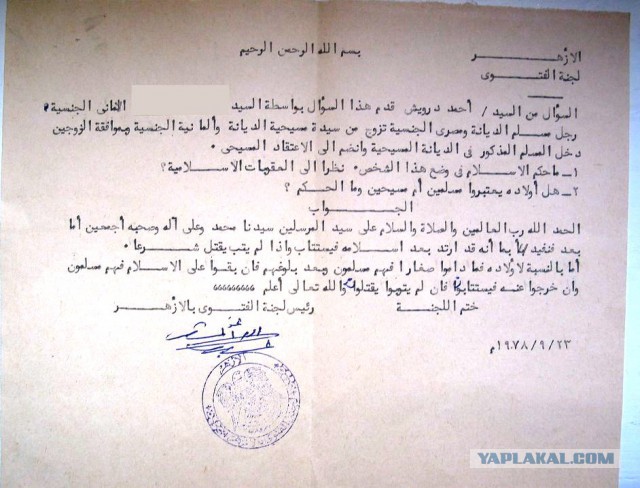 بسم الله الرحمن الرحيم
الأزهر
لجنة الفتوى
السؤال من السيد / أحمد درويش قدم هذا السؤال بواسطة السيد الالمانى الجنسية
رجل مسلم الديانة ومصرى الجنسية تزوج من سيدة مسيحية الديانة وألمانية الجنسية وبموافقة الزوجين
دخل المسلم المذكور فى الديانة المسيحية وانضم الى الاعتقاد المسيحى .
١ـ ماحكم الاسلام فى وضع هذا الشخص . نظرا الى العقوبات الاسلامية ؟
٢ـ هل أولاده يعتبروا مسلمين أم مسيحين وما الحكم ؟
الجواب
الحمد الله رب العالمين والصلاة والسلام على سيد المرسلين سيدنا محمد وعلى آله وصحبه أجمعين أما
بعد فنفيد بأنه قد ارتد بعد اسلامه فيستتاب واذا لم يتب يقتل شرعا .
أما بالنسبة لاولاده فما داموا صغارا فهم مسلمون وبعد بلوغهم فان بقوا على الاسلام فهم مسلمون
وان خرجوا عنه فيستتابوا فان لم يتوبوا يقتلوا والله تعالى أعلم
ختم اللجنة رئيس لجنة الفتوى بالأزهر
١٩٧٨/٩/٢٣م
الأزهر
YAPLAKAL.COM